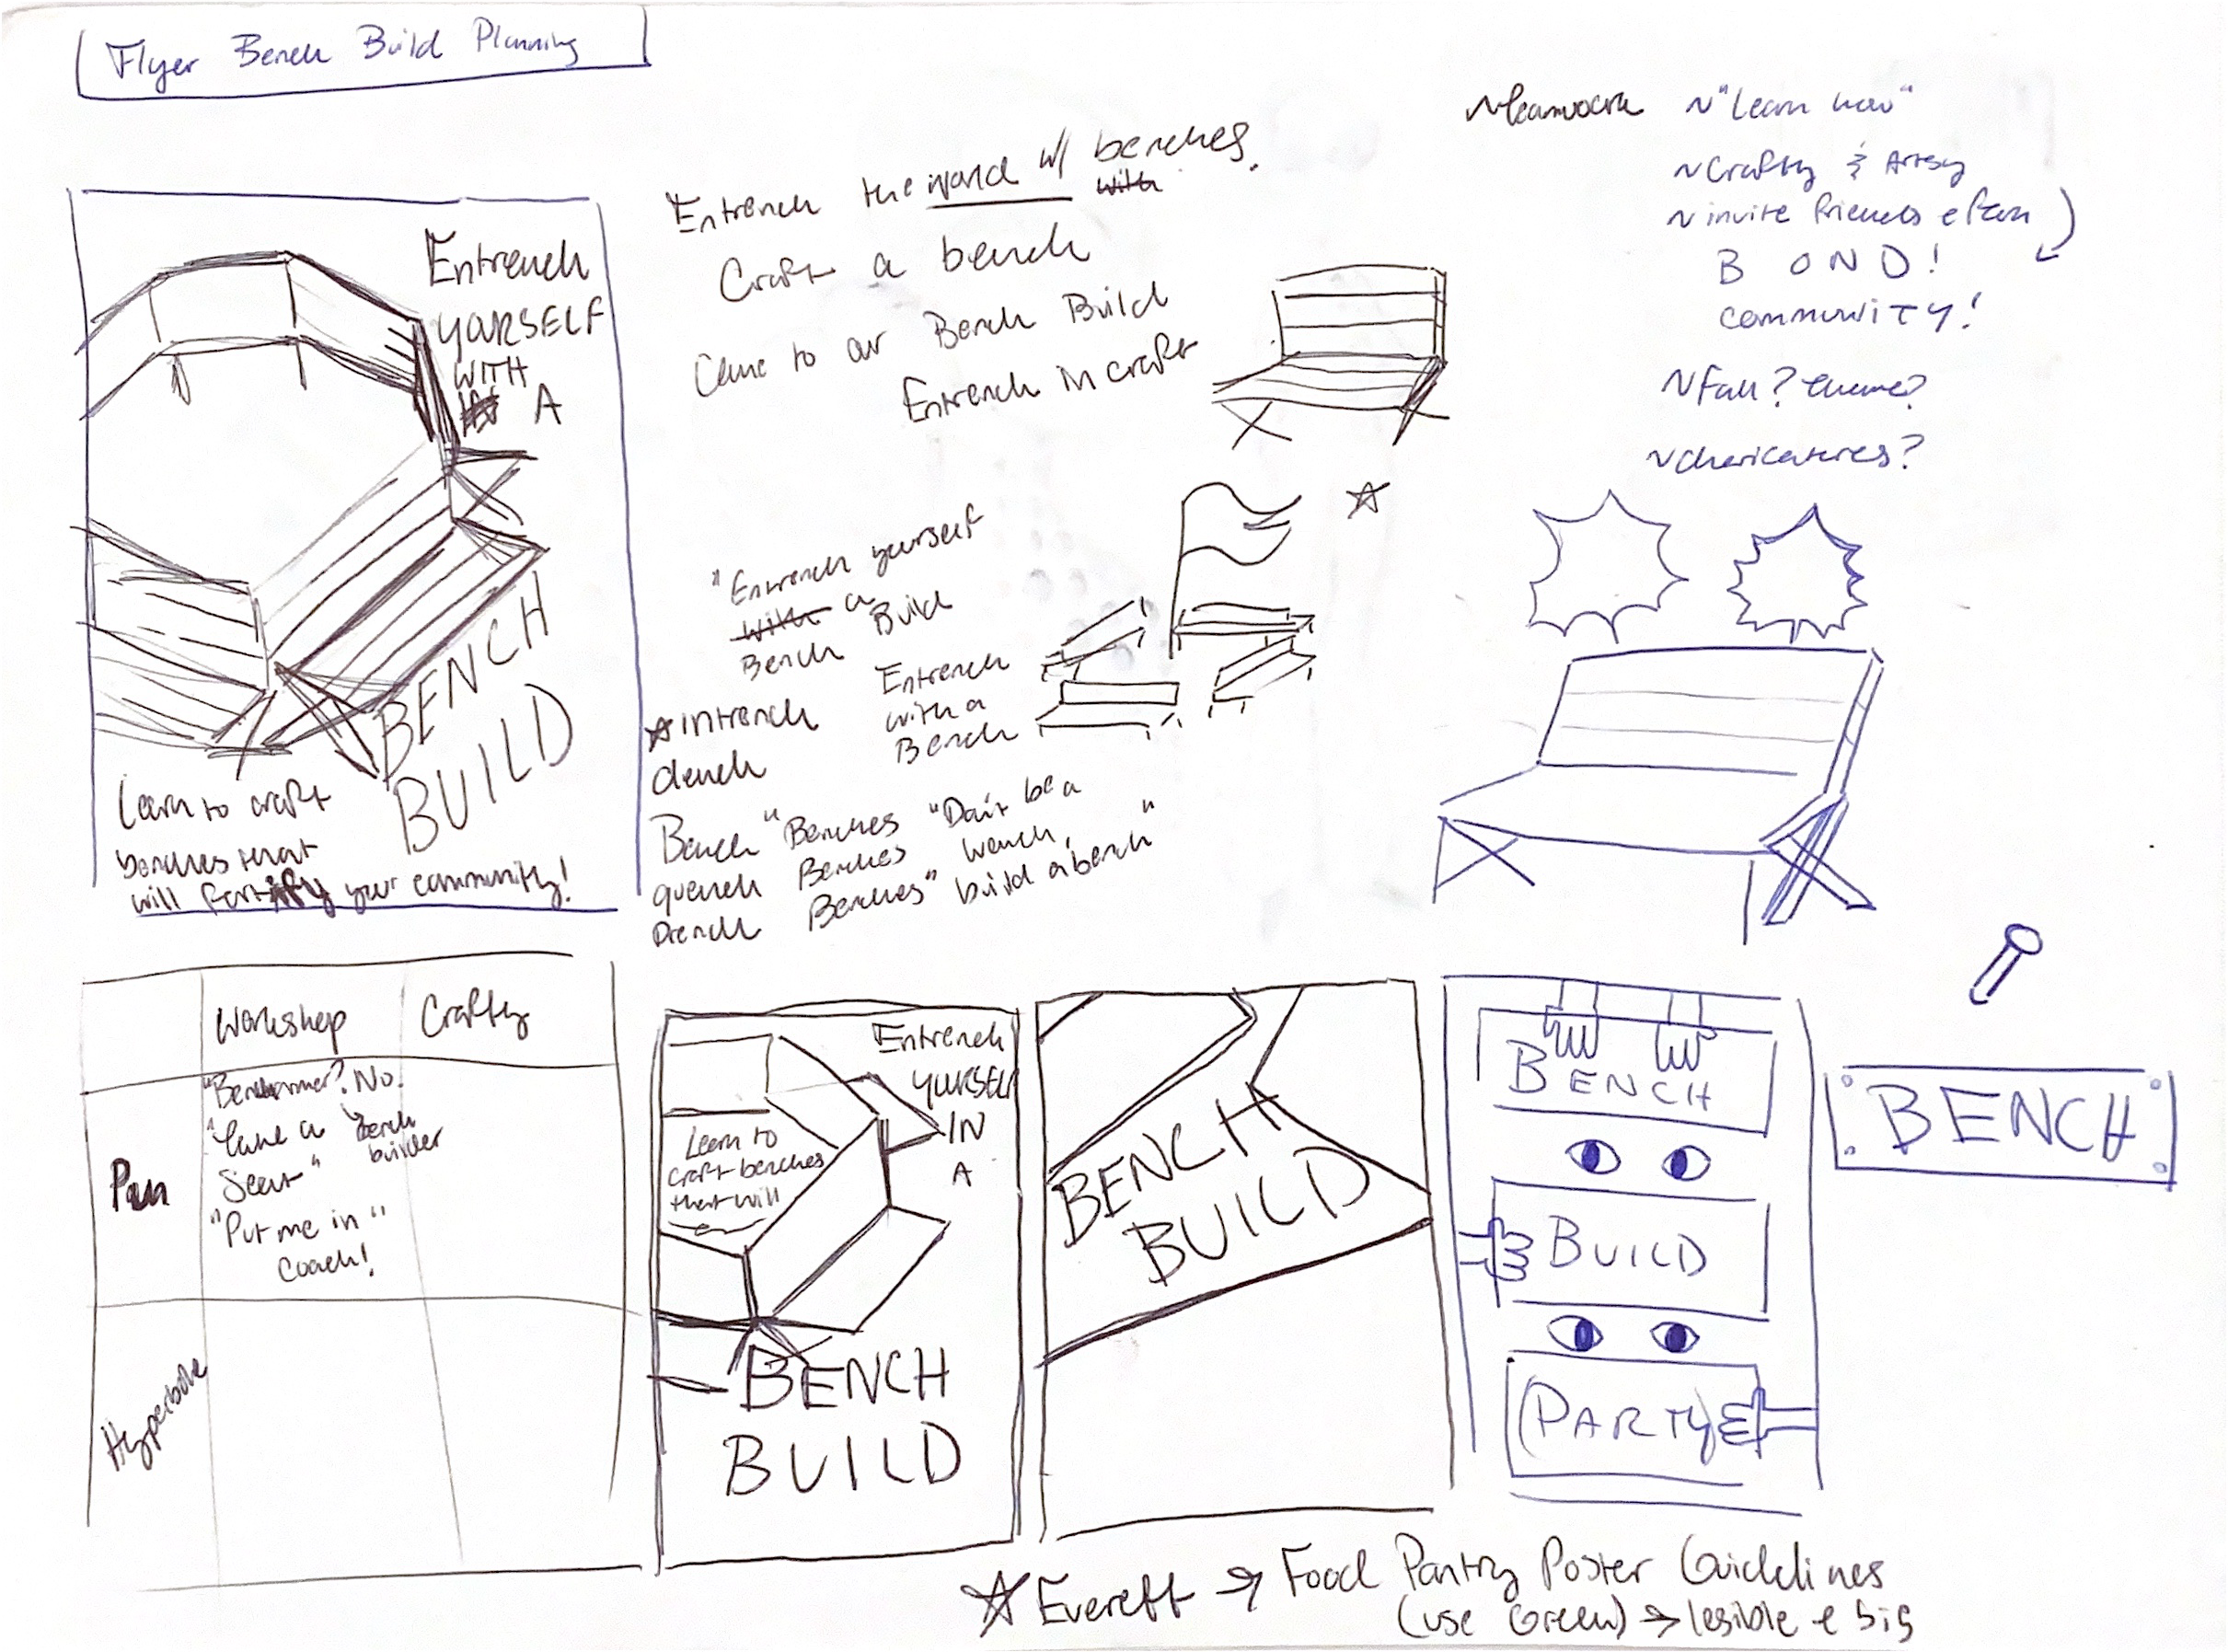 Flyer Bench Build Planning
Entrench
YOURSELF
WITH
A
BENCH
BUILD
Learn to craft
benches that
will fortify your community!
Entrench the world w/ benches.
with
Craft a bench
Come to our Bench Build
Entrench in craft
"Entrench yourself
with a
Bench Build
Entrench
with a
Bench
intrench
clench
Bench
quench
Drench
"Benches
Benches
Benches"
"Don't be a
wench,
build a bench"
~Teamwork
~"Learn how"
~Crafty & Artsy
~invite friends & fam
BOND!
community!
~Fall? theme?
~charicatures?
Workshop
Crafty
Pun
"Benchwarmer? No.
bench
builder
"Take a
Seat"
"Put me in"
Coach!
Hyperbole
Entrench
YOURSELF
IN
A
Learn to
craft benches
that will
BENCH
BUILD
BENCH
BUILD
BENCH
BUILD
PARTY
BENCH
Everett → Food Pantry Poster Guidelines
(use Green) → legible & big